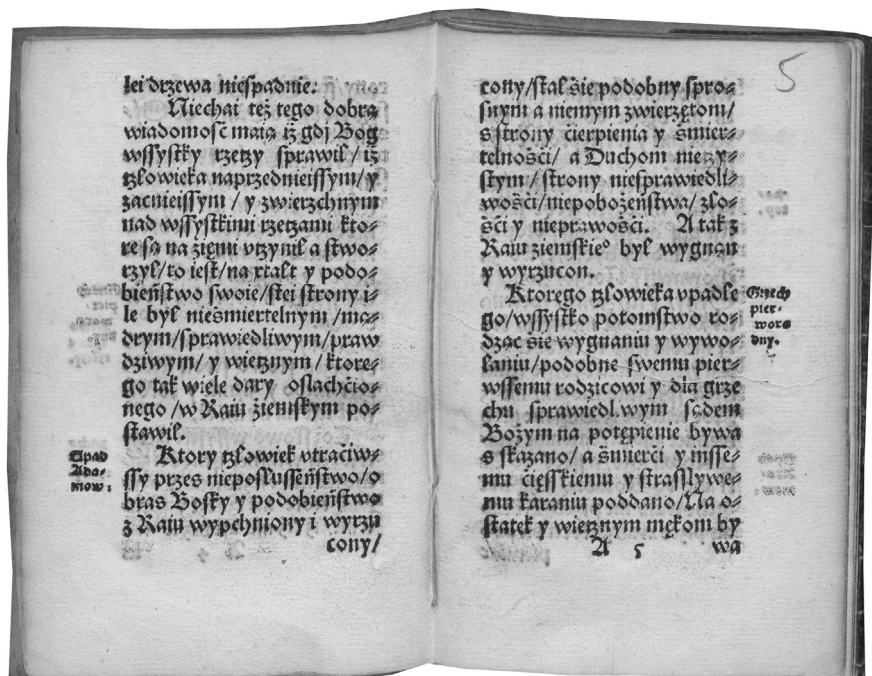 lei drzewa niespadnie.
Niechai też tego dobrą
wiadomość maią iż gdj Bog
wssystky rzeczy sprawil / iż
człowieka naprzednieissym / y
zacnieissym / y zwierzchnym
nad wssystkimi rzeczami kto⸗
re są na ziemi vczynił a stwo⸗
rzył / to iest / na xtałt y podo⸗
bieństwo swoie / stei strony i⸗
le był nieśmiertelnym / mą⸗
drym / sprawiedliwym / praw
dziwym / y wiecznym / ktore⸗
go tak wiele dary oslachćio⸗
nego / w Raiu źiemskym po⸗
stawił.
Upad
Ada⸗
mow:
Ktory człowiek vtraćiw⸗
ssy przes nieposłusseństwo / o
bras Bosky y podobieństwo
z Raiu wypchniony i wyrzu
cony /
5
cony / stał śie podobny spro⸗
snym a niemym zwierzętom /
s strony ćierpienia y śmier⸗
telnośći / a Duchom nieczy⸗
stym / strony niesprawiedli⸗
wośći / niepobożeństwa / zło⸗
śći y nieprawośći. A tak z
Raiu ziemskieº był wygnan
y wyrzucon.
Grzech
pier⸗
woro
dny.
Ktorego człowieka vpadłe
go / wssystko potomstwo ro⸗
dząc śie wygnaniu y wywo⸗
łaniu / podobne swemu pier⸗
wssemu rodzicowi y dla grze
chu sprawiedl.wym sądem
Bożym na potępienie bywa
s skazano / a śmierći y insse⸗
mu ćięsskiemu y strasslywe⸗
mu karaniu poddano / Na o⸗
statek y wiecznym mękom by
A 5 wa